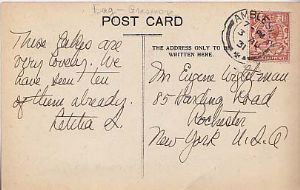 Lag- Grasmere
POST CARD
THE ADDRESS ONLY TO BE
WRITTEN HERE.
AMBLESIDE
These lakes are
very lovely. We
have seen ten
of them already.
Letitia L.
Mr Eugene
85 Harding Road
Rochester
New York U.S.A